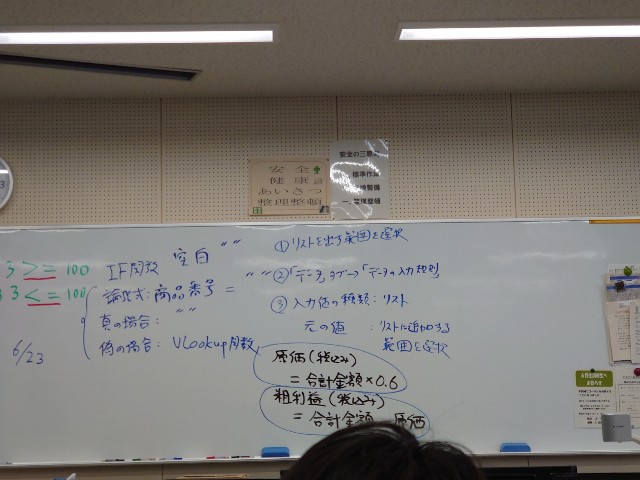 安全
健康
あいさつ
整理整頓
安全の三原則
標準作業
整理整頓
3 >= 100
3 <= 100
IF関数 空白 ""
論理式: 商品番号 = ""
真の場合: ""
偽の場合: VLookup関数
6/23
①リストを出す範囲を選択
②「データ」タブ→「データの入力規則」
③入力値の種類: リスト
元の値 : リストに追加する
範囲を選択
原価(税込み)
=合計金額×0.6
粗利益(税込み)
=合計金額-原価